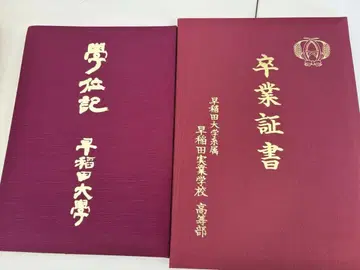 卒業証書
早稲田大学系属
早稲田実業学校 高等部
學位記
早稲田大學